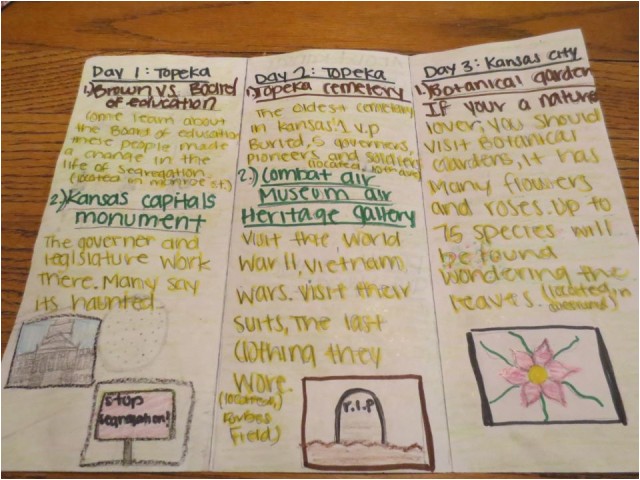 Day 1: Topeka
1.) Brown vs. Board
of education
Come learn about
the Board of education
these people made
a change in the
life of segregation.
(located in monroe st.)
2.) Kansas capitals
monument
The governer and
legislature work
There. Many say
its haunted
stop
segregation!
Day 2: Topeka
1.) Topeka cemetery
The oldest cemetery
in kansas! 1 v.p
Buried, 5 governers,
pioneers and soldiers
(located 10th ave)
2.) Combat air
Museum air
Heritage gallery
Visit the world
War II, vietnam
wars. visit their
suits, The last
clothing they
wore.
(located,
Forbes
Field)
R.I.P
Day 3: Kansas city
1.) Botanical garden
If your a nature
lover, you should
visit Botanical
Gardens, it has
Many flowers
and roses. up to
75 species will
be found
wondering the
leaves. (located in
overland)